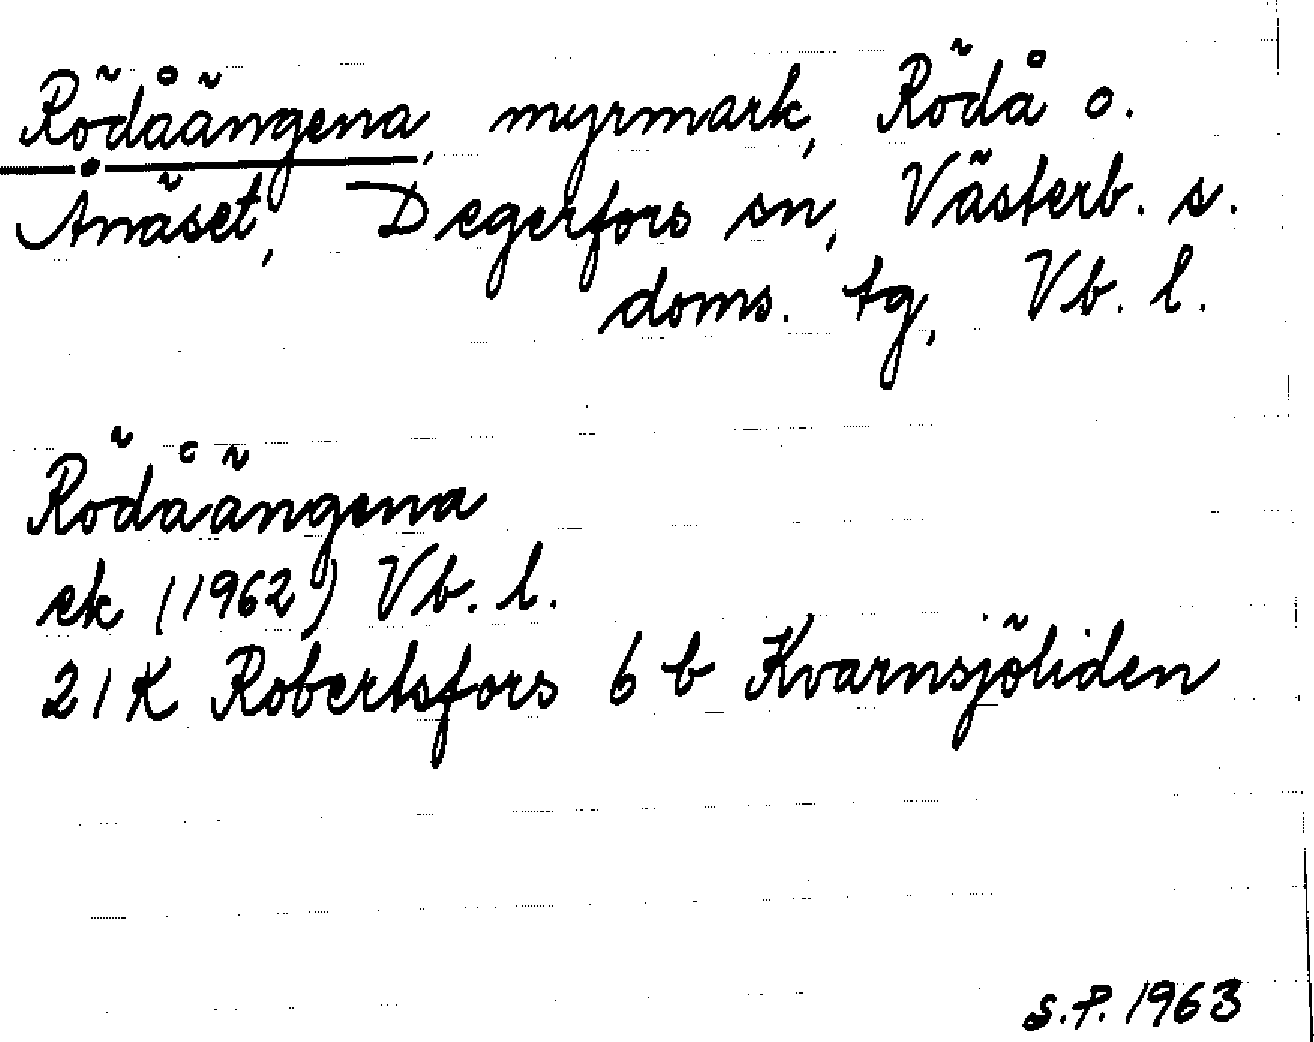 Rödåängena, myrmark, Rödå o.
Ånäset, Degerfors sn, Västerb. s.
doms. tg, Vb. l.
Rödåängena
ek (1962) Vb. l.
21K Robertsfors 6 b Kvarnsjöliden
S.P. 1963